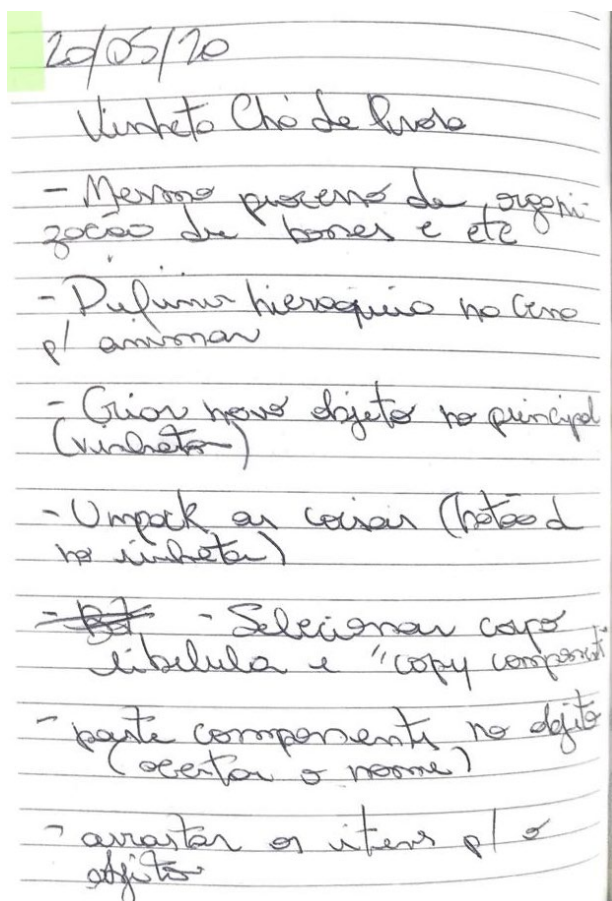 20/05/20
Vinheta Chá de
- Mesmo processo de organi-
zação de bones e etc
- Definir hieraquia na Cena
p/ animar
- Criar novo objeto no principal
(vinheta)
- Unpack as coisas (botão d
na vinheta)
- Selecionar corpo
libelula e "copy component
- paste components no objeto
(acertar o nome)
- arrastar os itens p/ o
objeto